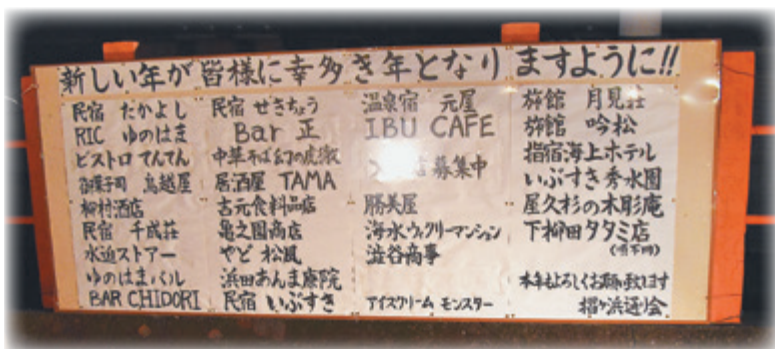 新しい年が皆様に幸多き年となりますように!!
民宿 たかよし
RIC ゆのはま
ビストロ てんてん
御菓子司 鳥越屋
柳村酒店
民宿 千成荘
水迫ストアー
ゆのはまバル
BAR CHIDORI
民宿 せきちょう
Bar 正
中華そば 幻の虎徹
居酒屋 TAMA
吉元食料品店
亀之園商店
やど 松風
浜田あんま療院
民宿 いぶすき
温泉宿 元屋
IBU CAFE
募集中
勝美屋
海水ウィクリーマンション
澁谷商事
アイスクリーム モンスター
旅館 月見荘
旅館 吟松
指宿海上ホテル
いぶすき秀水園
屋久杉の木彫庵
下柳田タタミ店
本年もよろしくお願い致します
摺ヶ浜通り会